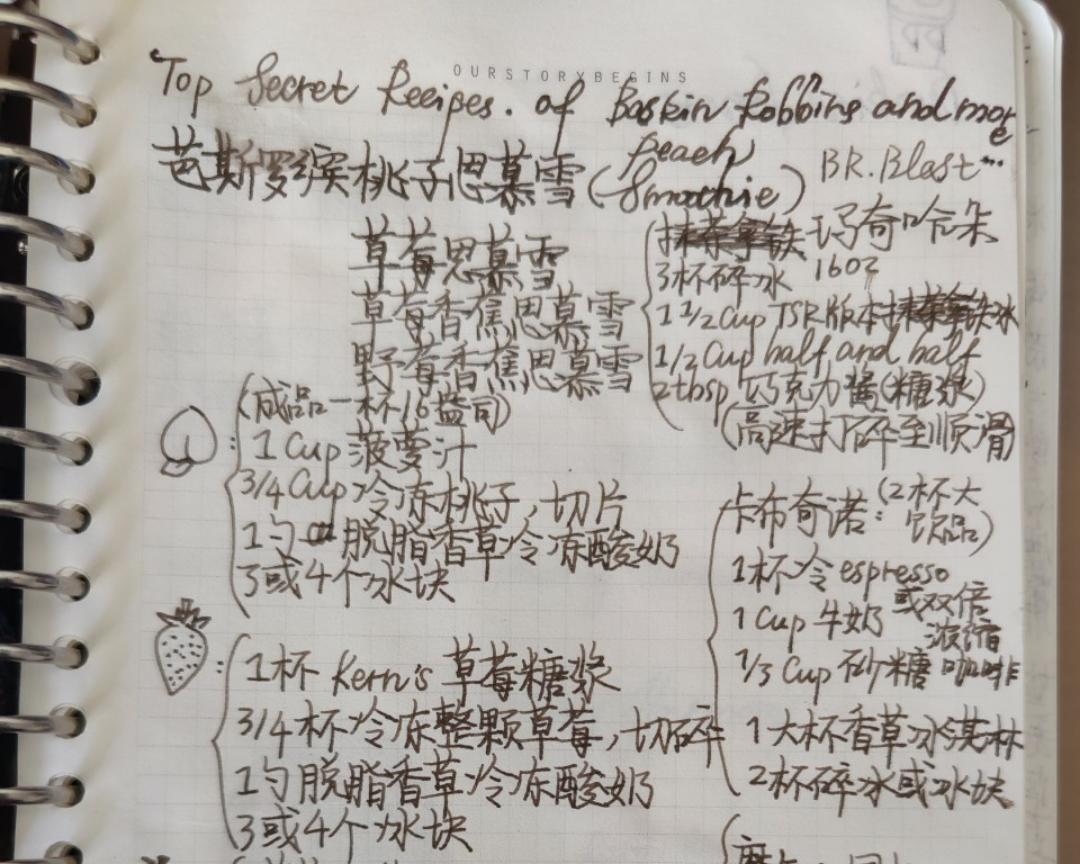 OURSTORYBEGINS
Top Secret Reeipes. of Baskin Robbins and more
芭斯罗缤桃子思慕雪(Peach Smoothie)
草莓思慕雪
草莓香蕉思慕雪
野莓香蕉思慕雪
(成品一杯16盎司)
1 Cup 菠萝汁
3/4 Cup 冷冻桃子,切片
1勺脱脂香草冷冻酸奶
3或4个冰块
1杯 Kern's 草莓糖浆
3/4杯冷冻整颗草莓,切碎
1勺脱脂香草冷冻酸奶
3或4个冰块
BR.Blast...
抹茶拿铁 玛奇哈朵
3杯碎冰 16oz
1 1/2 Cup TSR版本抹茶拿铁冰
1/2 Cup half and half
2tbsp 巧克力酱(糖浆)
(高速打碎至顺滑)
卡布奇诺:(2杯大饮品)
1杯冷 espresso
或双倍浓缩咖啡
1 Cup 牛奶
1/3 Cup 砂糖
1大杯香草冰淇淋
2杯碎冰或冰块
摩卡